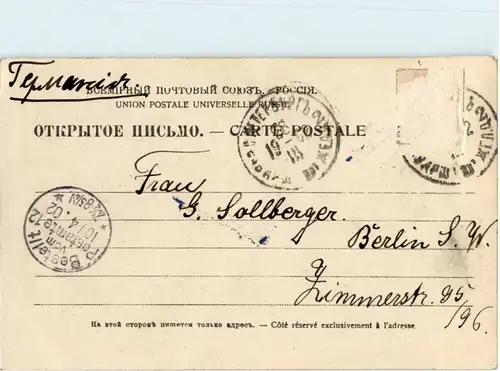 Германія.
ВСЕМІРНЫЙ ПОЧТОВЫЙ СОЮЗЪ. РОССІЯ.
UNION POSTALE UNIVERSELLE RUSSIE
ОТКРЫТОЕ ПИСЬМО. — CARTE POSTALE
Frau
G. Sollberger.
Berlin S. W.
Zimmerstr. 95/96.
Bestellt
vom
Postamte 12
10/4.02
На этой сторонѣ пишется только адресъ. — Côté réservé exclusivement à l'adresse.